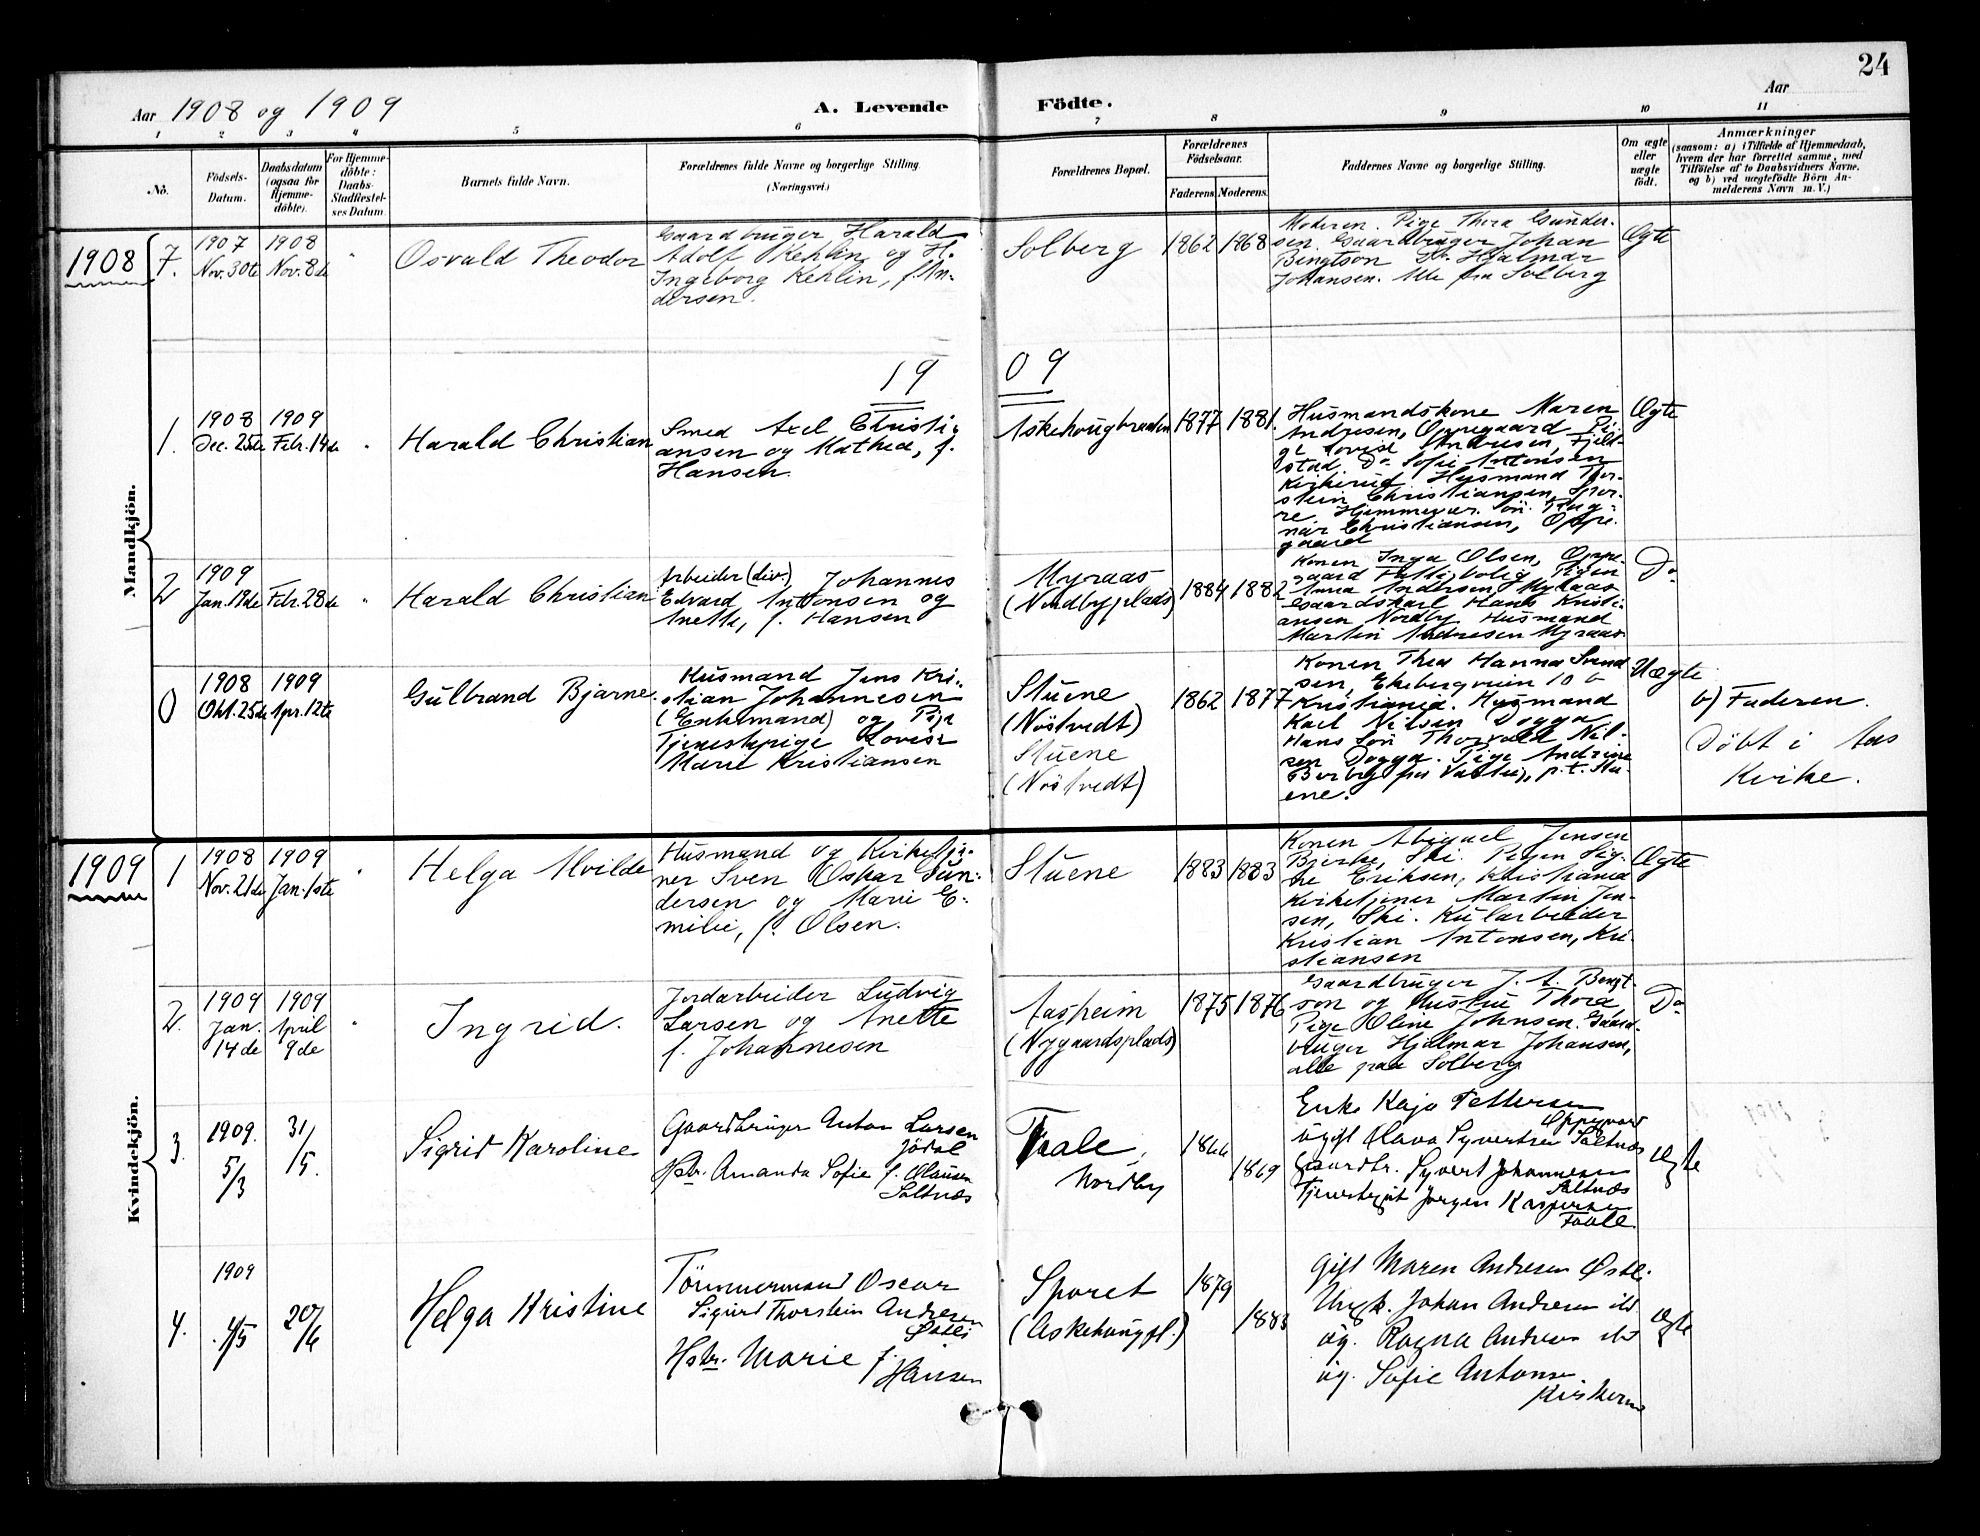 24
Aar 1908 og 1909
A. Levende
Födte.
Aar
1 2 3 4 5 6 7 8 9 10 11
No.
Födsels-
Datum.
Daabsdatum
(ogsaa for
Hjemme-
döbte).
For Hjemme-
döbte:
Daabs-
Stadfæstel-
ses Datum.
Barnets fulde Navn.
Forældrenes fulde Navne og borgerlige Stilling.
(Næringsvei.)
Forældrenes Bopæl.
Forældrenes
Födselsaar.
Faderens. Moderens.
Faddernes Navne og borgerlige Stilling.
Om ægte
eller
uægte
födt.
Anmærkninger
(saasom: a) i Tilfælde af Hjemmedaab,
hvem der har forrettet samme, med
Tilföielse af to Daabsvidners Navne.
og b) ved uægtefödte Börn An-
melderens Navn m. V.)
1908
Mandkjön.
7.
1907
Nov. 30te
1908
Nov. 8de
"
Osvald Theodor
Gaardbruger Harald
Adolf Kehlin og H.
Ingeborg Kehlin, f. An-
dersen.
Solberg
1862
1868
Moderen. Pige Thora Gunder-
sen. Gaardbruger Johan
Bengtson Do Hjalmar
Johansen. Alle fra Solberg
Ægte
19 09
1.
1908
Dec. 25de
1909
Febr. 14de
"
Harald Christian
Smed Axel Christi-
ansen og Mathea, f.
Hansen.
Askehougbraaten
1877
1881.
Husmandskone Maren
Andresen, Oppegaard Pi-
ge Lovise Andresen, Fjeld-
stad. Do Sofie Antonsen
Kirkerud Husmand Thor-
stein Christiansen, Spor-
re. Hjemmevær. Sön Rag-
nar Christiansen, Oppe-
gaard
Ægte
2
1909
Jan. 18de
Febr. 28de
"
Harald Christian
Arbeider (div.) Johannes
Edvard Antonsen og
Anette, f. Hansen
Myraas
(Nordbyplads)
1884
1882
Konen Inga Olsen, Oppe-
gaard Fattigbolig Pigen
Anna Andersen, Myraas
Gaardskarl Hans Kristi-
ansen Nordby Husmand
Martin Andresen Myraas
Do
0
1908
Okt. 25de
1909
Apr. 12te
Gulbrand Bjarne.
Husmand Jens Kri-
stian Johannesen
(Enkemand) og Pige
Tjenestepige Lovise
Marie Kristiansen
Stuene
(Nöstvedt)
Stuene
(Nöstvedt)
1862
1877
Konen Thea Hanna Svend-
sen, Ekebergveien 10 b
Kristiania. Husmand
Karl Nilsen Dogga
Hans Sön Thorvald Nil-
sen Dogga. Pige Andrine
Berby fra p. t. Stu-
ene.
Uægte
b) Faderen.
Döbt i Aas
Kirke.
1909
Kvindekjön.
1
1908
Nov. 21de
1909
Jan. 1ste
"
Helga Alvilde
Husmand og Kirketje-
ner Sven Oskar Gun-
dersen og Marie E-
milie, f. Olsen.
Stuene
1883
1883
Konen Abigael Jensen
Bjerke, Ski. Pigen Sig-
ne Eriksen, Kristiania
Kirketjener Martin Jen-
sen, Ski. Kularbeider
Kristian Antonsen, Kri-
stiansen
Ægte
2.
1909
Jan.
14de
1909
April
9de
"
Ingrid.
Jordarbeider Ludvig
Larsen og Anette
f. Johannesen
Aasheim
(Nygaardsplads)
1875
1876
Gaardbruger J. A. Bengt-
son og Hustru Thora,
Pige Oline Johnsen. Gaard-
bruger Hjalmar Johansen,
alle paa Solberg
Do
3.
1909.
5/3
31/5.
Sigrid Karoline
Gaardbruger Anton Larsen
Jödal
Hstr. Amanda Sofie f. Olausen
Saltnæs
Taale,
Nordby
1866
1869
Enke Kaja Pettersen
Oppegaard
ugift Olava Syvertsen Saltnæs
Gaardbr. Syvert Johannesen
Saltnæs
Tjenestegut Jörgen Kaspersen
Taale.
Ægte
4.
1909
4/5
20/6
Helga Kristine
Tömmermand Oscar
Sigurd Thorstein Andresen
Östli
Hstr. Marie f.
Hansen
Sporet
(Askehougpl.)
1879
1883
Gift Maren Andresen Østl.
Ungk. Johan Andresen ibd
ug. Ragna Andresen ibd
ug. Sofie Antonsen.
Ægte